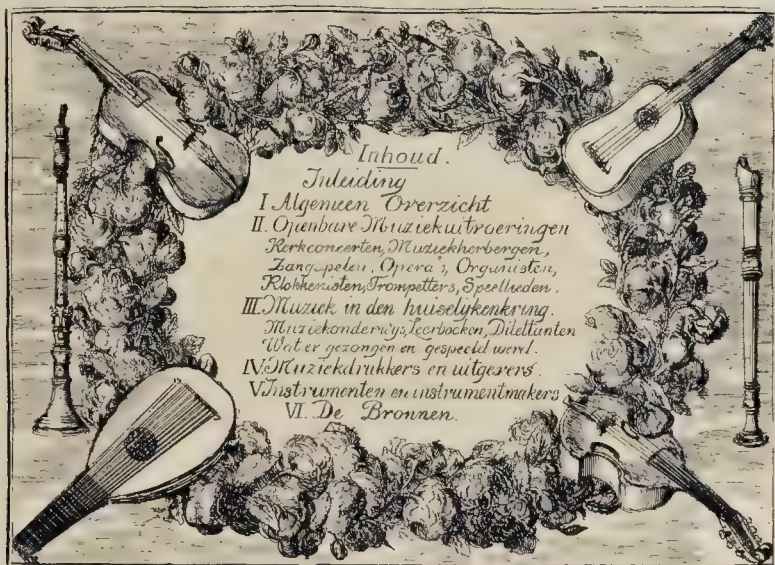 Inhoud.
Inleiding
I Algemeen Overzicht
II. Openbare Muziekuitvoeringen
Kerkconcerten, Muziekherbergen,
Zangspelen, Opera's, Organisten,
Klokkenisten, Trompetters, Speellieden.
III. Muziek in den huiselykenkring.
Muziekonderwys, Leerboeken, Dilettanten
Wat er gezongen en gespeeld werd.
IV. Muziekdrukkers en uitgevers
V Instrumenten en instrumentmakers
VI. De Bronnen.